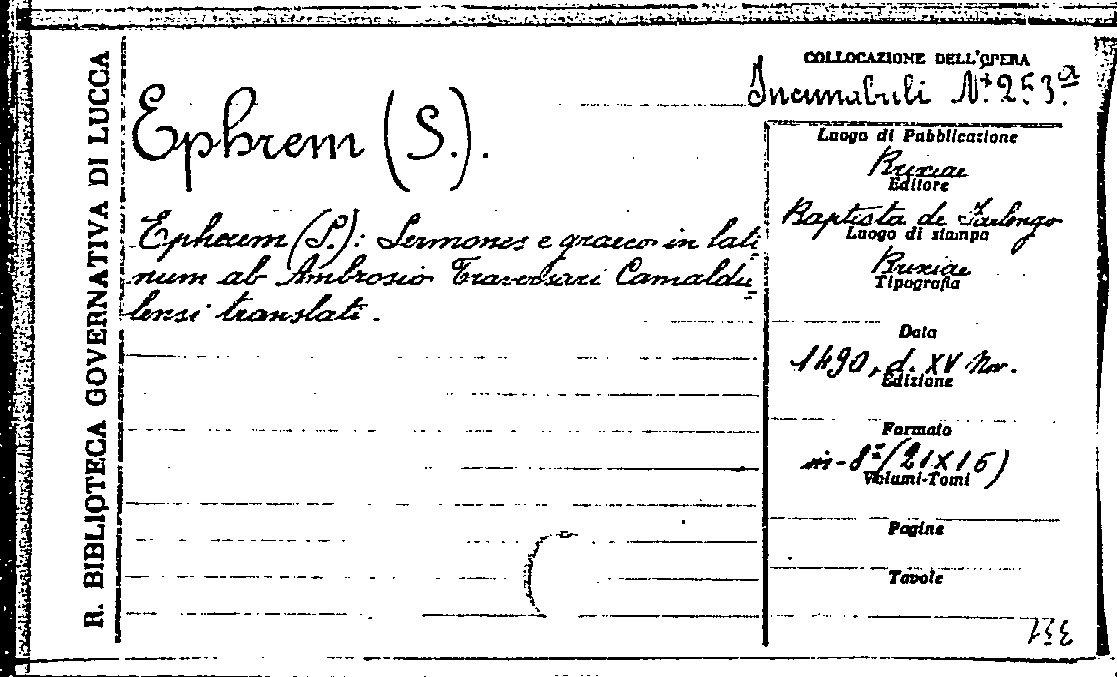 R. BIBLIOTECA GOVERNATIVA DI LUCCA
Ephrem (S.).
Ephrem (S.): Sermones e graeco in lati
num ab Ambrosio Traversari Camaldu=
lensi translati.
COLLOCAZIONE DELL'OPERA
Incunabuli N.° 253.a
Luogo di Pubblicazione
Brixiae
Editore
Baptista de Farfengo
Luogo di stampa
Brixiae
Tipografia
Data
1490, d. XV Nov.
Edizione
Formato
in-8° (21X15)
Volumi-Tomi
Pagine
Tavole